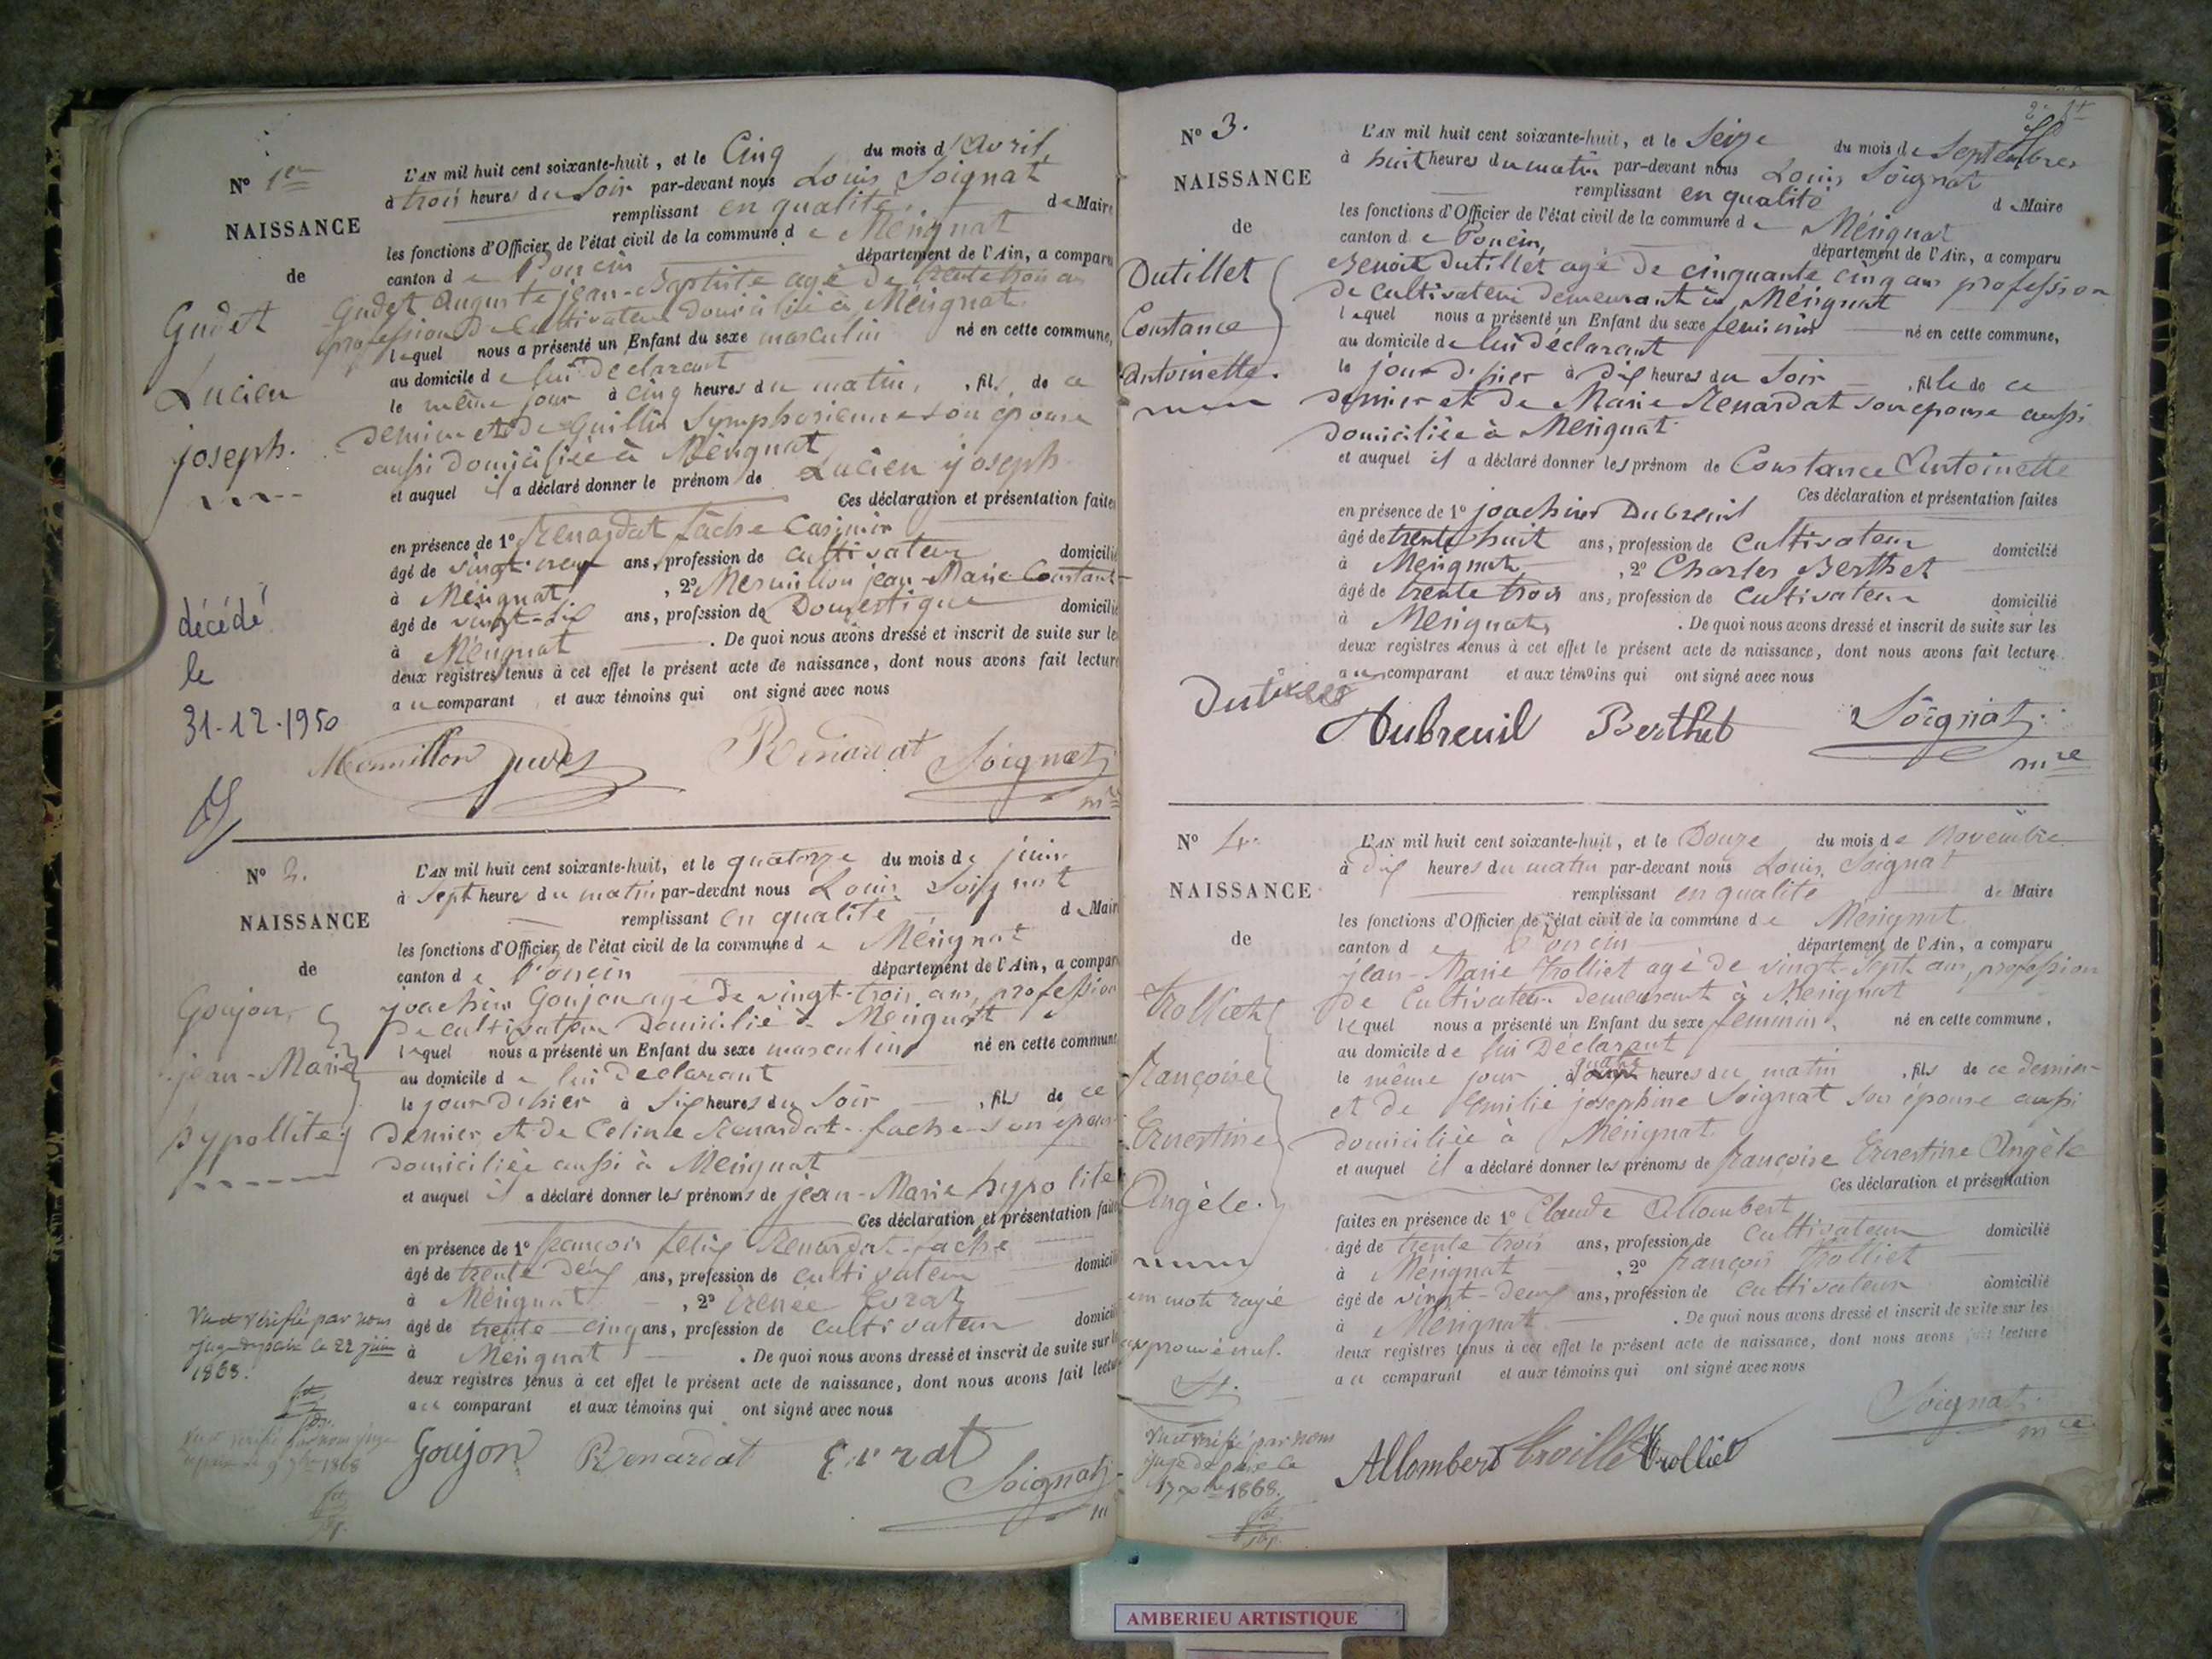 N° 1er
NAISSANCE
de
Gudet
Lucien
joseph.
décédé
le
31-12-1950
L'AN mil huit cent soixante-huit, et le Cinq du mois d'Avril
à trois heures du Soir par-devant nous Louis Soignat
remplissant en qualité de Maire
les fonctions d'Officier de l'état civil de la commune de Mérignat
canton de Poncin département de l'Ain, a comparu
Gudet auguste jean-Baptiste agé de trente trois ans
profession De Cultivateur domicilié à Mérignat
lequel nous a présenté un Enfant du sexe masculin né en cette commune,
au domicile de lui déclarant
le même jour à cinq heures du matin, fils de ce
dernier et de Guillin Symphorienne son épouse
aussi domiciliée à Mérignat
et auquel il a déclaré donner le prénom de Lucien joseph
Ces déclaration et présentation faites
en présence de 1° Renardat fâche Casimir
âgé de vingt-neuf ans, profession de cultivateur domicilié
à Mérignat, 2° Mermillon jean-Marie Constant
âgé de vingt-six ans, profession de Domestique domicilié
à Mérignat. De quoi nous avons dressé et inscrit de suite sur les
deux registres tenus à cet effet le présent acte de naissance, dont nous avons fait lecture
au comparant et aux témoins qui ont signé avec nous
Mermillon Renardat Soignat
mre
N° 2.
NAISSANCE
de
Goujon
jean-Marie
hypollite
Vu et vérifié par nous
juge de paix le 22 juin
1868.
L'AN mil huit cent soixante-huit, et le quatorze du mois de juin
à Sept heure du matin par-devant nous Louis Soignat
remplissant en qualité de Maire
les fonctions d'Officier de l'état civil de la commune de Mérignat
canton de Poncin département de l'Ain, a comparu
joachim Goujon agé de vingt-trois ans, profession
De cultivateur Domicilié à Mérignat
lequel nous a présenté un Enfant du sexe masculin né en cette commune
au domicile de lui déclarant
le jour d'hier à Six heures du Soir, fils de ce
dernier et de Celine Renardat-fache son épouse
domiciliée aussi à Mérignat
et auquel il a déclaré donner les prénoms de jean-Marie hypolite
Ces déclaration et présentation faites
en présence de 1° françois felix Renardat-fache
âgé de trente deux ans, profession de cultivateur domicilié
à Mérignat, 2° irenée Evrat
âgé de trente-cinq ans, profession de cultivateur domicilié
à Mérignat. De quoi nous avons dressé et inscrit de suite sur les
deux registres tenus à cet effet le présent acte de naissance, dont nous avons fait lecture
au comparant et aux témoins qui ont signé avec nous
Goujon Renardat Evrat
Soignat
N° 3.
NAISSANCE
de
Dutillet
Constance
Antoinette.
L'AN mil huit cent soixante-huit, et le Seize du mois de Septembre
à huit heures du matin par-devant nous Louis Soignat
remplissant en qualité de Maire
les fonctions d'Officier de l'état civil de la commune de Mérignat
canton de Poncin, département de l'Ain, a comparu
Benoit Dutillet agé de cinquante cinq ans profession
de cultivateur demeurant à Mérignat
lequel nous a présenté un Enfant du sexe feminin né en cette commune,
au domicile de lui déclarant
le jour d'hier à dix heures du Soir, fille de ce
dernier et de Marie Renardat son epouse aussi
domiciliée à Mérignat
et auquel il a déclaré donner les prénom de Constance Antoinette
Ces déclaration et présentation faites
en présence de 1° joachim Dubreuil
âgé de trente huit ans, profession de Cultivateur domicilié
à Mérignat, 2° Charles Berthet
âgé de trente trois ans, profession de cultivateur domicilié
à Mérignat. De quoi nous avons dressé et inscrit de suite sur les
deux registres tenus à cet effet le présent acte de naissance, dont nous avons fait lecture
au comparant et aux témoins qui ont signé avec nous
Dubreuil Berthet Soignat
mre
N° 4.
NAISSANCE
de
Trolliet
françoise
Ernestine
Angèle.
un mot rayé
Vu et vérifié par nous
juge de paix le
1868.
L'AN mil huit cent soixante-huit, et le Douze du mois de Novembre
à dix heures du matin par-devant nous Louis Soignat
remplissant en qualité de Maire
les fonctions d'Officier de l'état civil de la commune de Mérignat
canton de Poncin département de l'Ain, a comparu
jean-Marie Trolliet agé de vingt-Sept ans, profession
De Cultivateur demeurant à Mérignat
lequel nous a présenté un Enfant du sexe feminin né en cette commune,
au domicile de lui Déclarant
le même jour à quatre heures du matin, fils de ce dernier
et de Emilie josephine Soignat son épouse aussi
domiciliée à Mérignat
et auquel il a déclaré donner les prénoms de françoise Ernestine Angèle
Ces déclaration et présentation
faites en présence de 1° Claude Allombert
âgé de trente trois ans, profession de Cultivateur domicilié
à Mérignat, 2° françois Trolliet
âgé de vingt-deux ans, profession de cultivateur domicilié
à Mérignat. De quoi nous avons dressé et inscrit de suite sur les
deux registres tenus à cet effet le présent acte de naissance, dont nous avons fait lecture
au comparant et aux témoins qui ont signé avec nous
Soignat
mre
Allombert Trolliet
AMBERIEU ARTISTIQUE